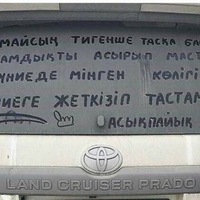 МАЙСЫҢ ТИГЕНШЕ ТАСҚА БА
АМДЫҚТЫ АСЫРЫП МАСТ
ҮНИЕДЕ МІНГЕН КӨЛІГІ
ИЕГЕ ЖЕТКІЗІП ТАСТАМ
АСЫҚПАЙЫҚ
TOYOTA
LAND CRUISER PRADO